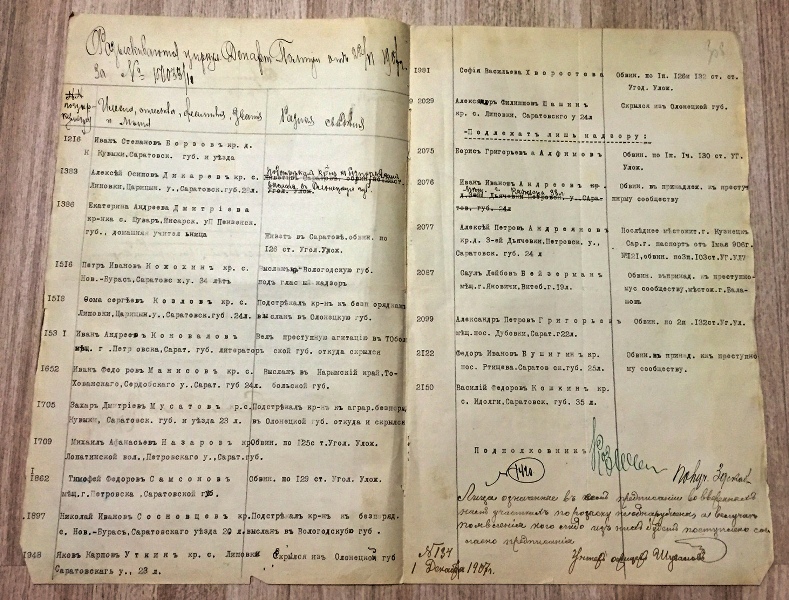 Разыскиваются циркул. Департ. Полиціи отъ
За №
Имена, отчества, фамилія, званія
и лѣта
Разная свѣдѣнія
1216 Иванъ Степановъ Борзовъ кр. д.
Кувыки, Саратовск. губ. и уѣзда
1383 Алексѣй Осиповъ Дикаревъ кр. с.
Липовки, Царицын. у., Саратовск. губ. 28л.
въ Олонецкую губ.
1386 Екатерина Андреева Дмитріева
кр-нка с. Шуваръ, Инсарск. у Пензенск.
губ., домашняя учительница
Живетъ въ Саратовѣ, обвин. по
126 ст. Угол. Улож.
1516 Петръ Ивановъ Кохохинъ кр. с.
Нов.-Бурасъ, Саратовск. у. 34 лѣтъ
Высланъ Вологодскую губ.
подъ гласный надзоръ
1518 Фома Сергѣевъ Козловъ кр. с.
Липовки, Царицын. у., Саратовск. губ. 24л.
Подстрекалъ кр-нъ къ безп орядкамъ
высланъ въ Олонецкую губ.
1531 Иванъ Андреевъ Коноваловъ
мѣщ. г. Петровска, Сарат. губ. литераторъ
Велъ преступную агитацію въ Тоболь
ской губ. откуда скрылся
1652 Иванъ Федоровъ Манисовъ кр. с.
Хованскаго, Сердобскаго у., Сарат. губ 24л.
Высланъ въ Нарымскій край, То-
больской губ.
1705 Захаръ Дмитріевъ Мусатовъ кр. с.
Кувыки, Саратовск. губ. и уѣзда 23 л.
Подстрекалъ кр-нъ къ аграр. безпор.
въ Олонецкой губ. откуда и скрылся
1709 Михаилъ Афанасьевъ Назаровъ кр.
Лопатинской вол., Петровскаго у., Сарат. губ.
Обвин. по 125с т. Угол. Улож.
1862 Тимофей Федоровъ Самсоновъ
мѣщ. г. Петровска, Саратовской губ.
Обвин. по 129 ст. Угол. Улож.
1897 Николай Ивановъ Сосновцевъ кр.
с. Нов.-Бурасъ, Саратовскаго уѣзда 20 л.
Подстрекалъ кр-нъ къ безпоряд.
высланъ въ Вологодскую губ.
1948 Яковъ Карповъ Уткинъ кр. с. Липовки
Саратовскагъ у., 23 л.
Скрылся изъ Олонецкой губ
1981 Софія Васильева Хворостова
Обвин. по 1п. 126и 132 ст. ст.
Угол. Улож.
2029 Александръ Филиповъ Шашинъ
кр. с. Липовки, Саратовскаго у 24л
Скрылся изъ Олонецкой губ.
-Подлежатъ лишь надзору:
2075 Борисъ Григорьевъ Алфимовъ
Обвин. по 1п. 1ч. 130 ст. УГ.
Улож.
2076 Иванъ Ивановъ Андреевъ кр.
тов. губ. 24л
Обвин. въ принадлеж. къ престу
пному сообществу
2077 Алексѣй Петровъ Андреяновъ
кр. д. 3-ей Дьячевки, Петровск. у.,
Саратовск. губ. 24 л
Последнее мѣстожит. г. Кузнецкъ
Сар. г. паспортъ отъ 1мая 906г.
№121, обвин. по3п. 103ст. УГ. УЛУ
2087 Сауль Лейбовъ Бейзерманъ
мѣщ. г. Яновичи, Витеб. г. 19л.
Обвин. въпринад. къ преступно-
му сообществу, мѣстож. г. Бала-
шовъ
2099 Александръ Петровъ Григорьевъ
мѣщ. пос. Дубовки, Сарат. г22л.
Обвин. по 2п. 132ст. Уг. Ул.
2122 Федоръ Ивановъ Бушигинъ кр.
пос. Ртищева, Саратовск. губ. 25л.
Обвин. въ принад. къ преступно
му сообществу.
2150 Василій Федоровъ Кошкинъ кр.
с. Идолги, Саратовск. губ. 35 л.
Подполковникъ
Лица означенные въ семъ предписаніи во ввѣренномъ
мнѣ участкѣ по розыску не обнаружены, а въ случаѣ
появленія кого либо изъ нихъ будетъ поступлено сог
ласно предписанія
№ 134
1 Декабря 1907г.
Унтеръ офицеръ